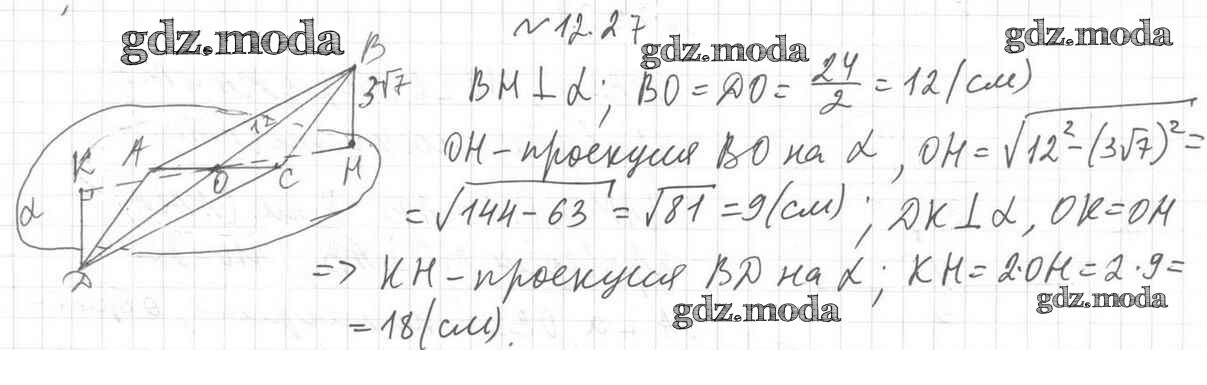 №12.27
gdz.moda
gdz.moda
gdz.moda
B
3√7
12
K
A
O
C
H
α
D
BH ⊥ α; BO = DO = 24/2 = 12 (см)
OH – проекция BO на α, OH = √(12² – (3√7)²) =
= √(144 – 63) = √81 = 9 (см); DK ⊥ α, OK = OH
=> KH – проекция BD на α; KH = 2·OH = 2·9 =
= 18 (см).
gdz.moda
gdz.moda